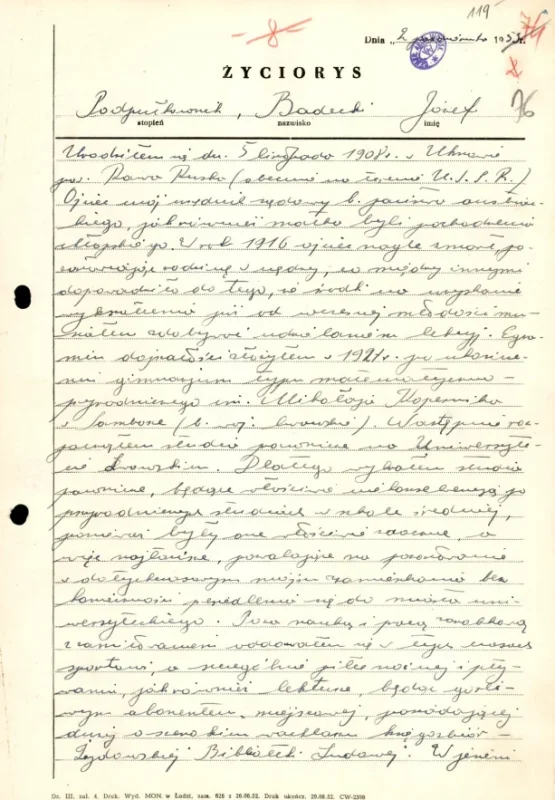 119
-8-
Dnia „2 października 195
8
76
ŻYCIORYS
Podpułkownik, Badecki Józef
stopień nazwisko imię
Urodziłem się dn. 5 listopada 1908 r. w Uhnowie
pow. Rawa Ruska (obecnie na terenie U.S.S.R.)
Ojciec mój urzędnik sądowy b. zaboru austriac-
kiego, jak również matka byli pochodzenia
chłopskiego. W rok 1916 ojciec nagle zmarł, po-
zostawiając rodzinę w nędzy, co między innymi
doprowadziło do tego, że środki na uzyskanie
wykształcenia już od wczesnej młodości mu-
siałem zdobywać udzielaniem lekcyj. Egza-
min dojrzałości złożyłem w 1927 r. po ukończe-
niu gimnazjum typu matematyczno-
przyrodniczego im. Mikołaja Kopernika
w Samborze (b. woj. lwowskie). Następnie roz-
począłem studia prawnicze na Uniwersyte-
cie Lwowskim. Dlatego wybrałem studia
prawnicze, będące właściwie niekonsekwencją po
przyrodniczych studiach w szkole średniej,
ponieważ były one właściwie zaoczne, a
więc najtańsze, pozwalające na pozostawanie
w dotychczasowym moim zamieszkaniu bez
konieczności przesiedlenia się do miasta uni-
wersyteckiego. Poza nauką i pracą zarobkową
z zamiłowaniem oddawałem się w tych czasach
sportowi, a szczególnie piłce nożnej i pły-
waniu, jak również lekturze, będąc gorli-
wym abonentem miejscowej, posiadającej
duży o szerokim wachlarzu księgozbiór -
Żydowskiej Biblioteki Ludowej. W jesieni
Dz. III, zał. 4. Druk. Wyd. MON. w Łodzi, zam. 626 z 26.06.52. Druk ukończ. 29.08.52. CW-2398